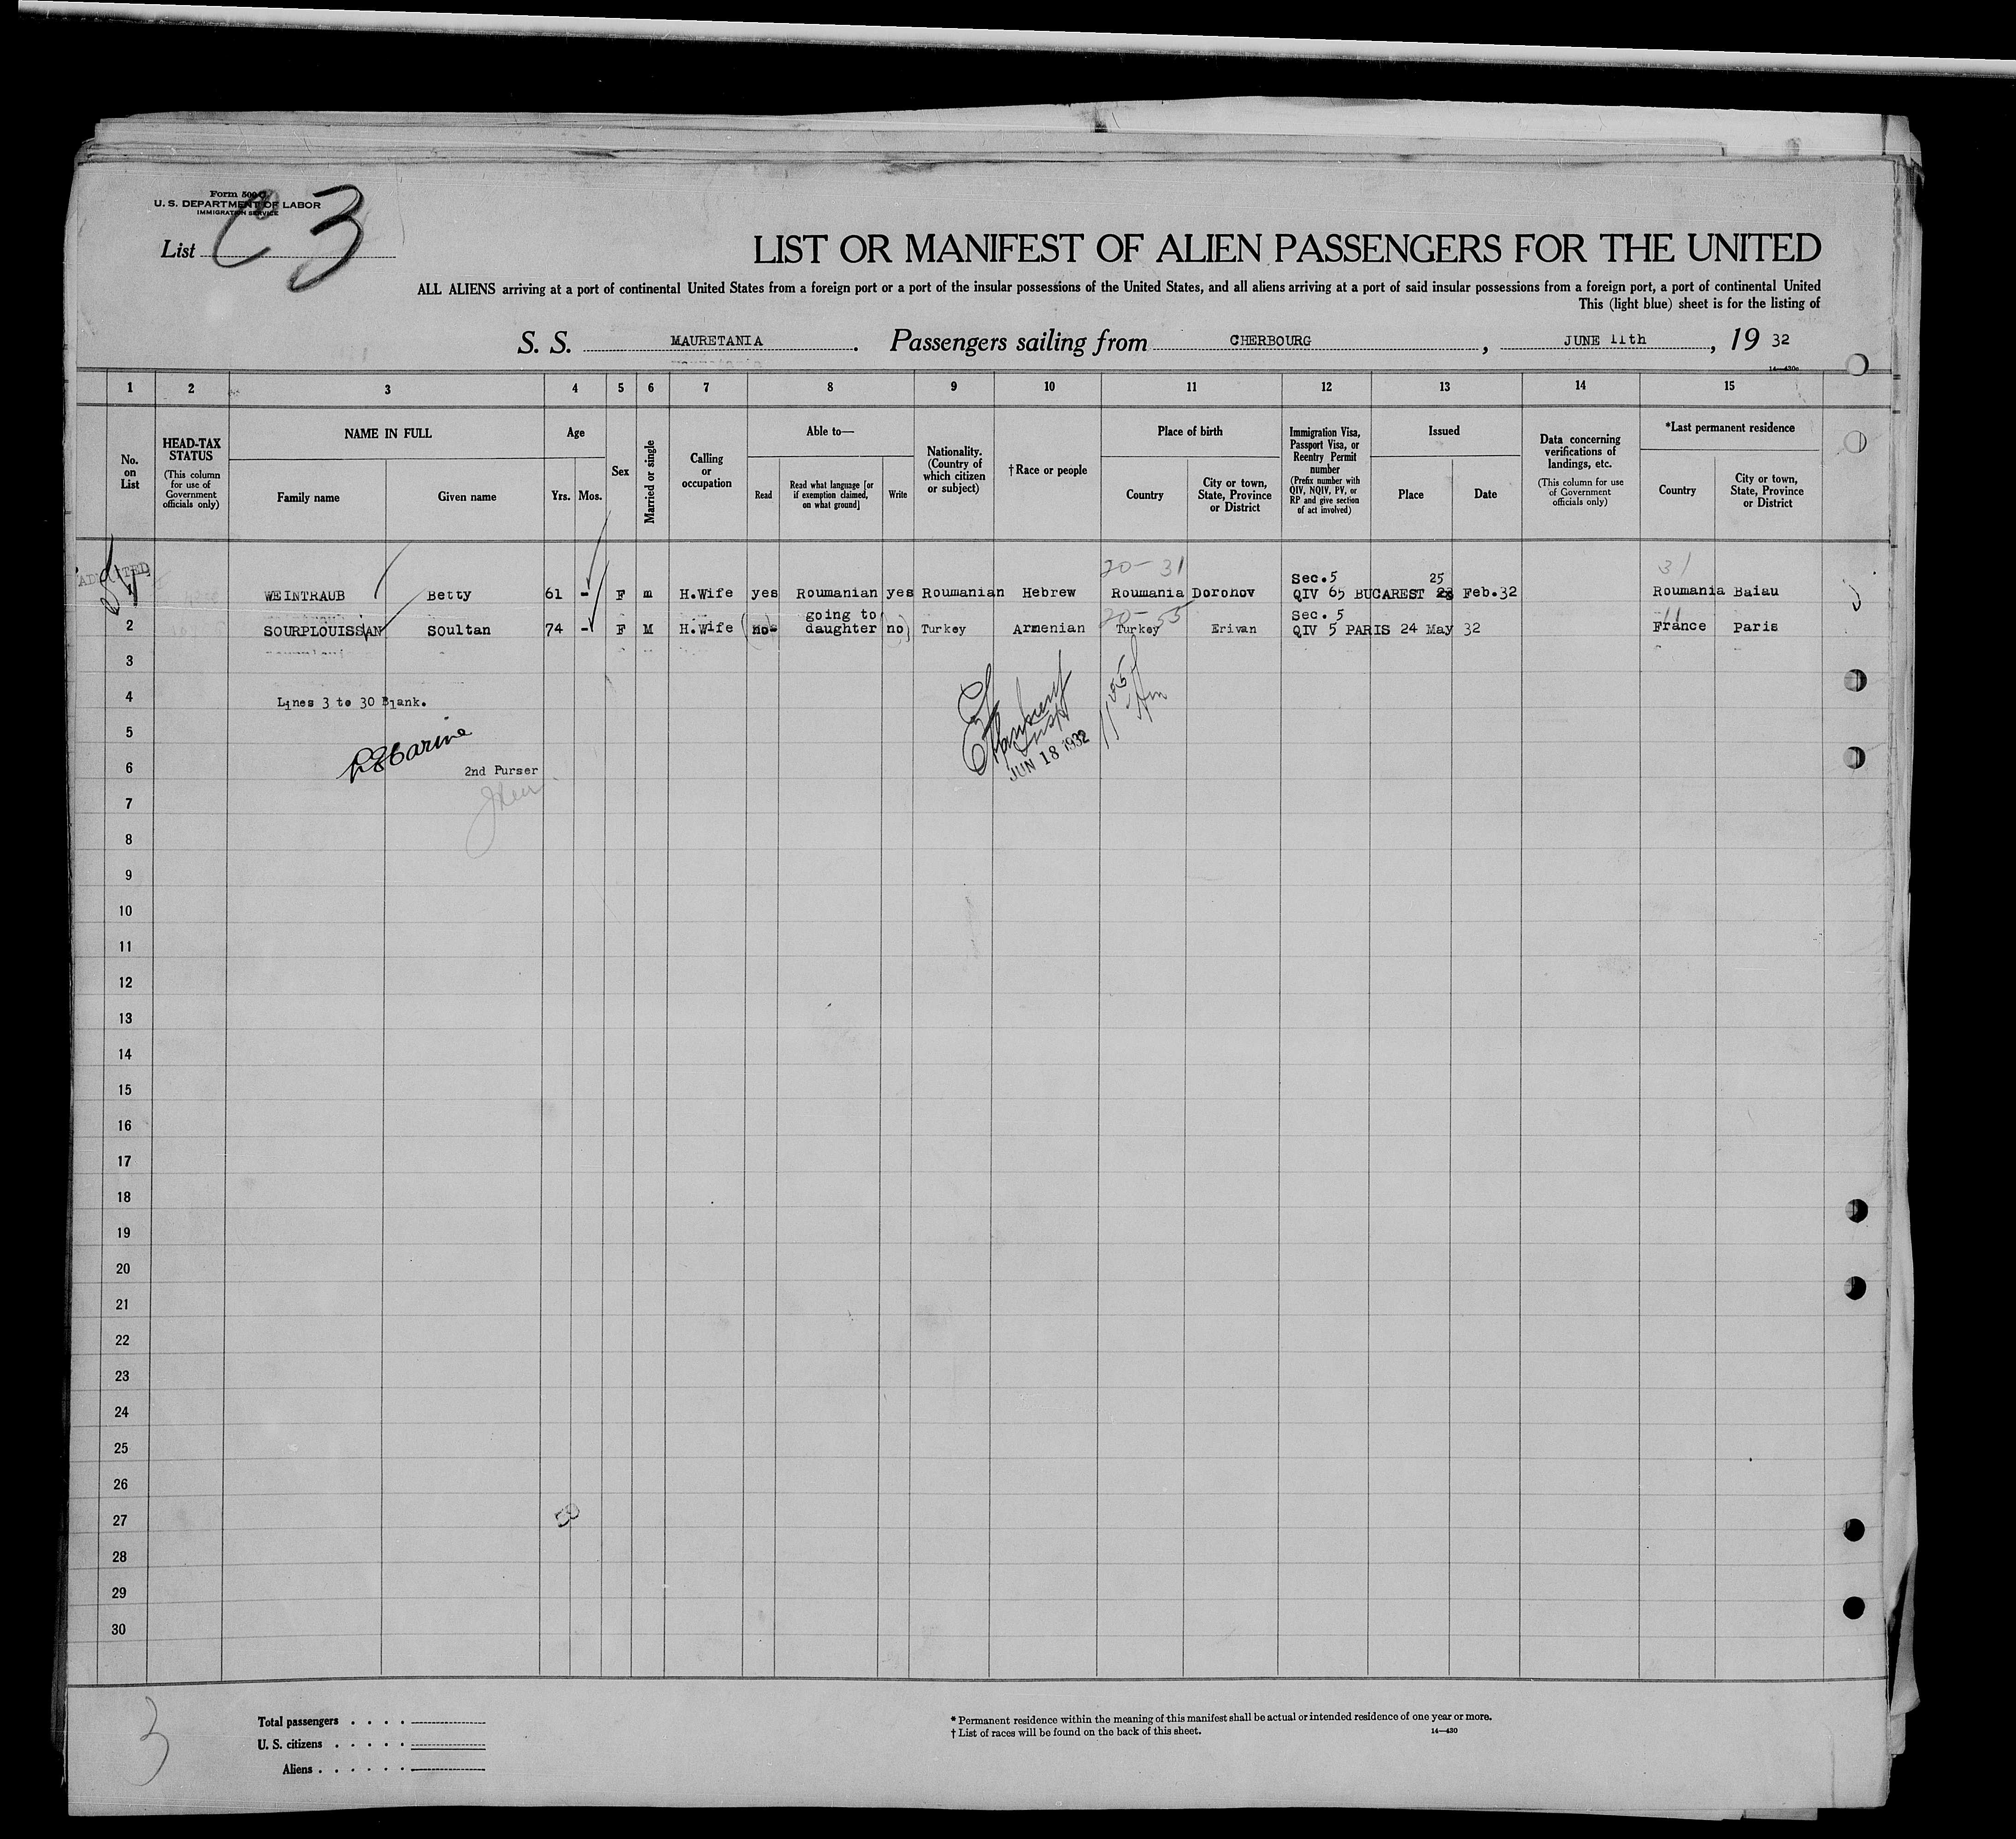 Form 500
U. S. DEPARTMENT OF LABOR
IMMIGRATION SERVICE
List C 3
LIST OR MANIFEST OF ALIEN PASSENGERS FOR THE UNITED
ALL ALIENS arriving at a port of continental United States from a foreign port or a port of the insular possessions of the United States, and all aliens arriving at a port of said insular possessions from a foreign port, a port of continental United
This (light blue) sheet is for the listing of
S. S. MAURETANIA. Passengers sailing from CHERBOURG, JUNE 11th, 19 32
1 2 3 4 5 6 7 8 9 10 11 12 13 14 15
No. on List
HEAD-TAX STATUS
(This column for use of Government officials only)
NAME IN FULL
Family name Given name
Age
Yrs. Mos.
Sex
Married or single
Calling or occupation
Able to—
Read
Read what language [or if exemption claimed, on what ground]
Write
Nationality. (Country of which citizen or subject)
†Race or people
Place of birth
Country
City or town, State, Province or District
Immigration Visa, Passport Visa, or Reentry Permit number
(Prefix number with QIV, NQIV, PV, or RP and give section of act involved)
Issued
Place Date
Data concerning verifications of landings, etc.
(This column for use of Government officials only)
*Last permanent residence
Country
City or town, State, Province or District
ADMITTED
20-31 Sec.5 25 31
1 WEINTRAUB Betty 61 - F m H.Wife yes Roumanian yes Roumanian Hebrew Roumania Doronov QIV 65 BUCAREST Feb.32 Roumania Baiau
going to 20-55 Sec. 5 11
2 SOURPLOUISSIAN Soultan 74 - F M H.Wife no daughter no Turkey Armenian Turkey Erivan QIV 5 PARIS 24 May 32 France Paris
3
4 Lines 3 to 30 Blank.
5
JUN 18 1932
6 2nd Purser
7
8
9
10
11
12
13
14
15
16
17
18
19
20
21
22
23
24
25
26
27
28
29
30
3
Total passengers
U. S. citizens
Aliens
* Permanent residence within the meaning of this manifest shall be actual or intended residence of one year or more.
† List of races will be found on the back of this sheet. 14—430